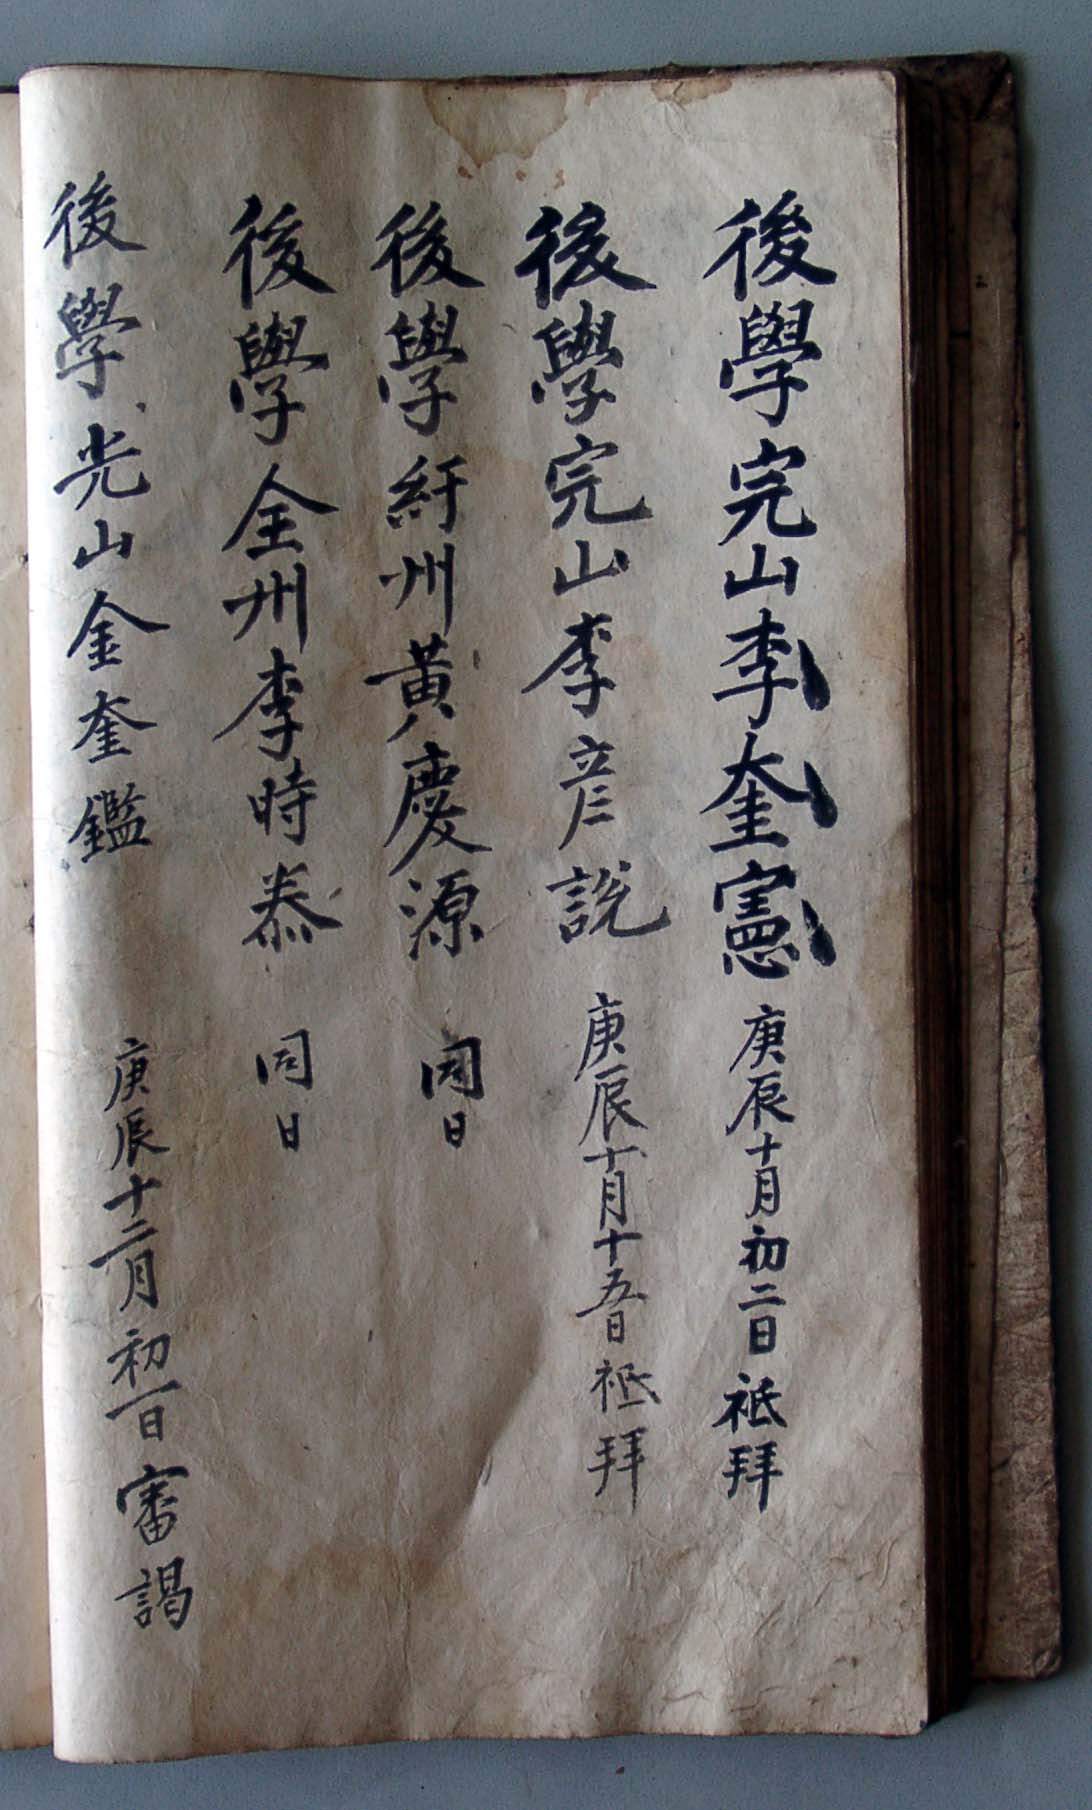 後學完山李奎憲 庚辰十月初二日祗拜
後學完山李彦說 庚辰十月十五日祗拜
後學紆州黃慶源 同日
後學全州李時泰 同日
後學光山金奎鑑 庚辰十二月初一日審謁